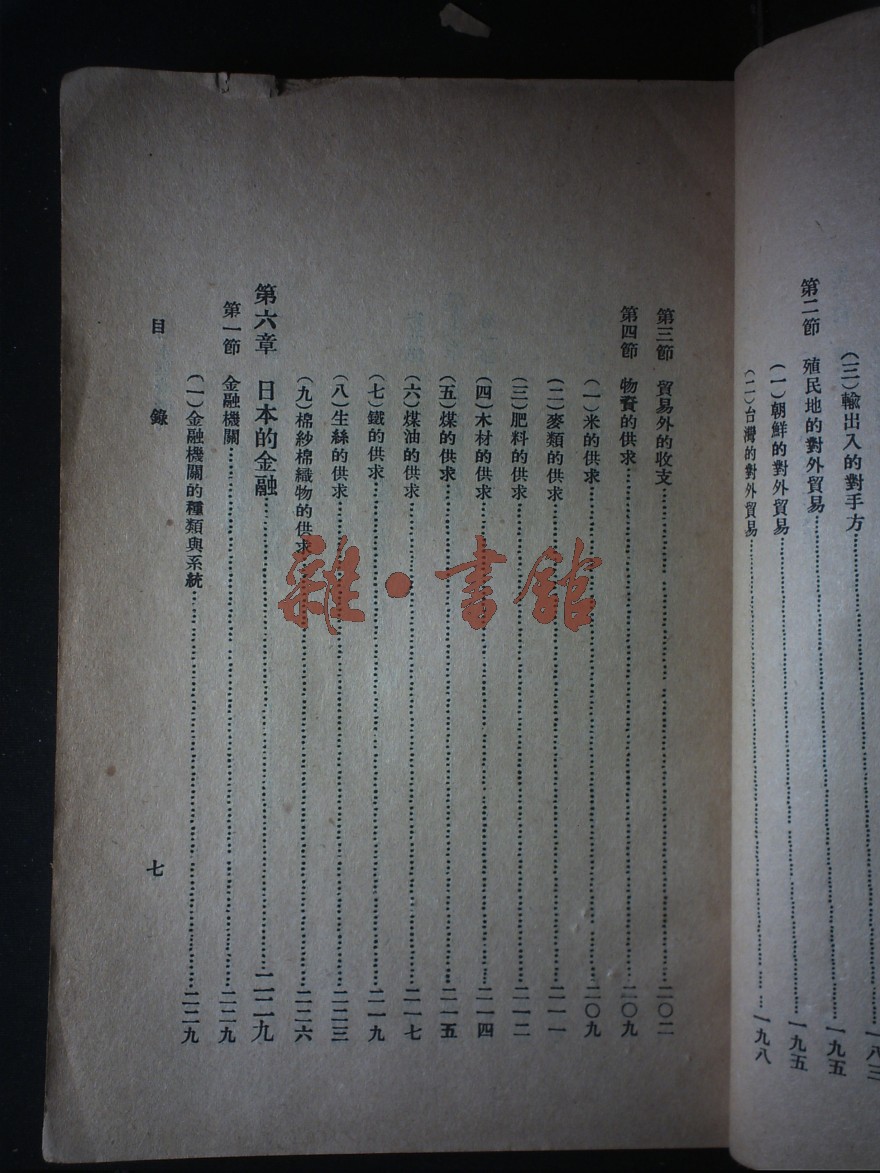 （三）輸出入的對手方……一八三
第二節　殖民地的對外貿易……一九五
（一）朝鮮的對外貿易……一九五
（二）台灣的對外貿易……一九八
第三節　貿易外的收支……二〇二
第四節　物資的供求……二〇九
（一）米的供求……二〇九
（二）麥類的供求……二一一
（三）肥料的供求……二一二
（四）木材的供求……二一四
（五）煤的供求……二一五
（六）煤油的供求……二一七
（七）鐵的供求……二一九
（八）生絲的供求……二二三
（九）棉紗棉織物的供求……二二六
第六章　日本的金融……二二九
第一節　金融機關……二二九
（一）金融機關的種類與系統……二二九
目錄
七
雜·書館